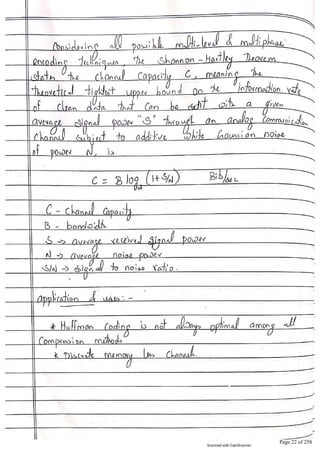 Considering all possible multi-level & multiphase
encoding techniques, the Shannon-Hartley theorem
states the channel capacity C, meaning the
theoretical tightest upper bound on the information rate
of clean data that can be sent with a given
average signal power "S" through an analog communication
channel subject to additive white Gaussian noise
of power N, is
C = B log (1+S/N) Bits/sec
C - Channel Capacity
B - bandwidth
S → average received signal power
N → average noise power
S/N → signal to noise ratio.
application & uses :-
* Huffman Coding is not always optimal among all
Compression methods
* Discrete memory less Channel.
Page 22 of 258
Scanned with CamScanner